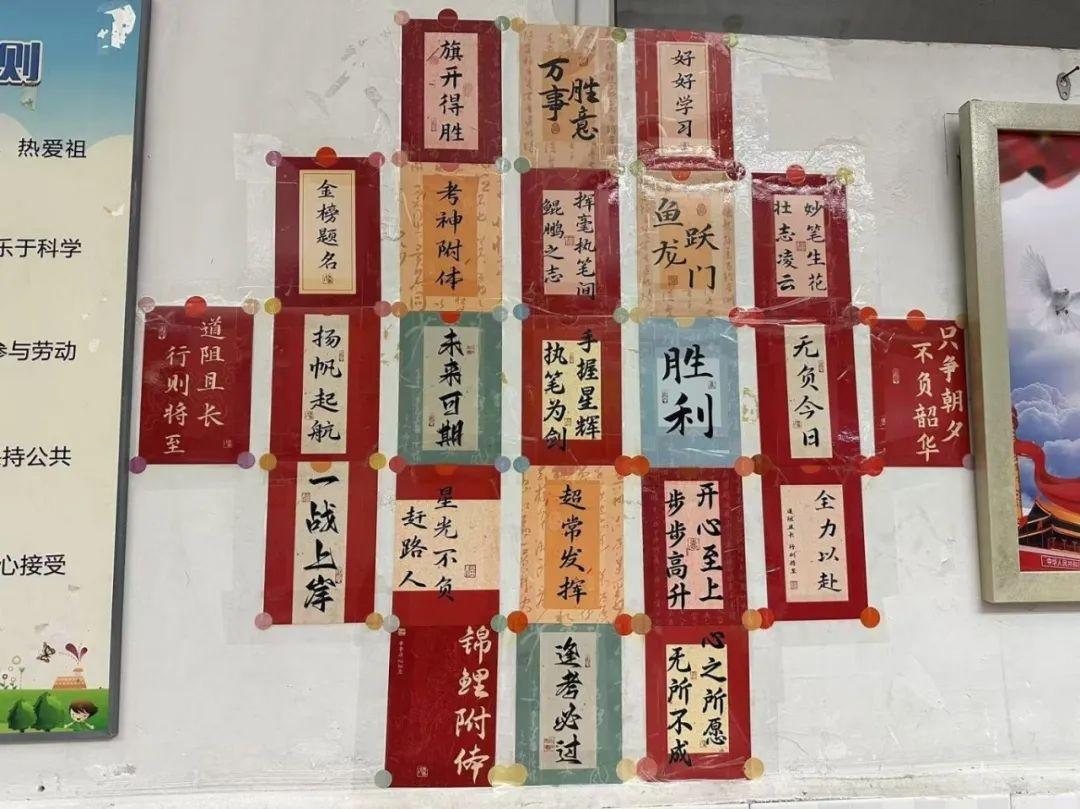 则
热爱祖
乐于科学
参与劳动
保持公共
心接受
旗开得胜
万事
胜意
好好学习
金榜题名
考神附体
挥毫执笔间
鲲鹏之志
鱼跃
龙门
妙笔生花
壮志凌云
道阻且长
行则将至
扬帆起航
未来可期
手握星辉
执笔为剑
胜利
无负今日
只争朝夕
不负韶华
一战上岸
星光不负
赶路人
超常发挥
开心至上
步步高升
全力以赴
道阻且长 行则将至
锦鲤附体
逢考必过
心之所愿
无所不成
中华人民共和